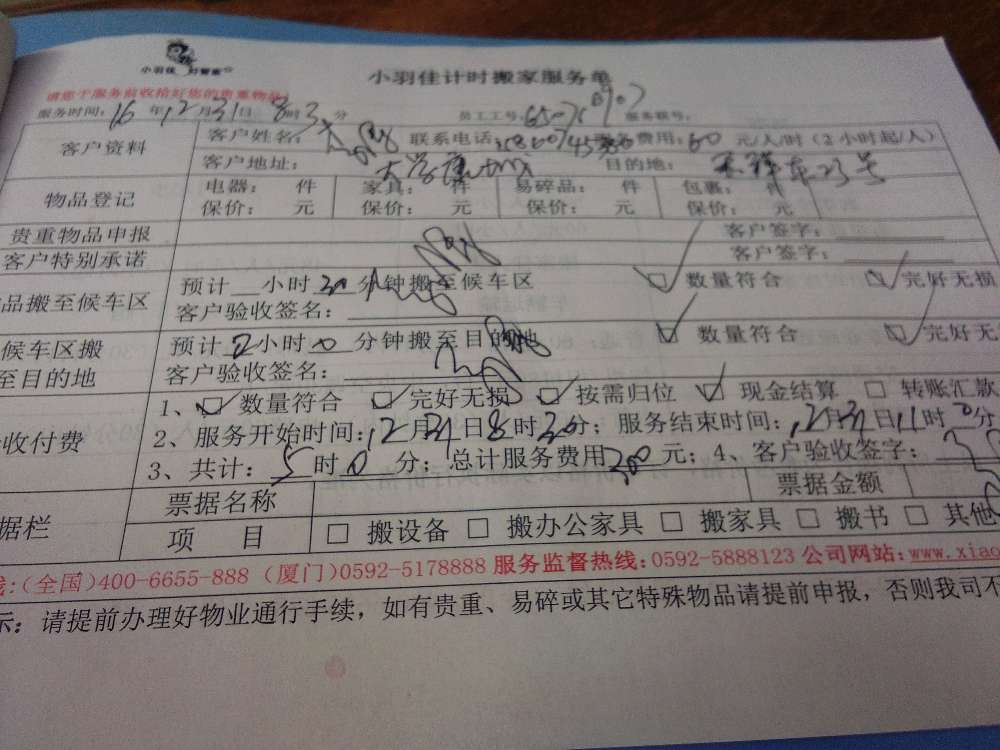 小羽佳 好管家
小羽佳计时搬家服务单
请您于服务前收拾好您的贵重物品!
服务时间: 16 年 12 月 31 日 8 时 3 分 员工工号: 服务联号:
客户资料 客户姓名: 联系电话: 服务费用: 60 元/人/时 (2小时起/人)
客户地址: 目的地: 23号
物品登记 电器: 件 家具: 件 易碎品: 件 包裹: 件
保价: 元 保价: 元 保价: 元 保价: 元
贵重物品申报 客户签字:
客户特别承诺 客户签字:
品搬至候车区 预计 小时 30 分钟搬至候车区 数量符合 完好无损
客户验收签名:
候车区搬 预计 2 小时 0 分钟搬至目的地 数量符合 完好无
至目的地 客户验收签名:
收付费 1、 数量符合 完好无损 按需归位 现金结算 转账汇款
2、服务开始时间: 12 月 31 日 8 时 30 分; 服务结束时间: 12 月 31 日 11 时 0 分
3、共计: 5 时 0 分; 总计服务费用 300 元; 4、客户验收签字:
据栏 票据名称 票据金额
项 目 搬设备 搬办公家具 搬家具 搬书 其他
线:(全国)400-6655-888 (厦门)0592-5178888 服务监督热线: 0592-5888123 公司网站: www.xiao
示: 请提前办理好物业通行手续, 如有贵重、易碎或其它特殊物品请提前申报, 否则我司不